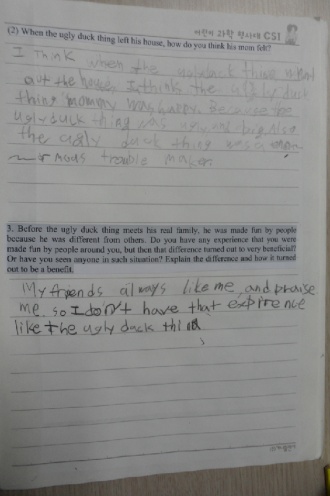 어린이 과학 형사대 CSI
(2) When the ugly duck thing left his house, how do you think his mom felt?
I think when the
out the house, I think the ugly duck
thing mommy was happy. Because the
ugly duck thing was ugly and big. Also
the ugly duck thing was a
mous trouble maker.
3. Before the ugly duck thing meets his real family, he was made fun by people
because he was different from others. Do you have any experience that you were
made fun by people around you, but then that difference turned out to very beneficial?
Or have you seen anyone in such situation? Explain the difference and how it turned
out to be a benefit.
My friends always like me and praise
me. so I don't have that expirence
like the ugly duck thing